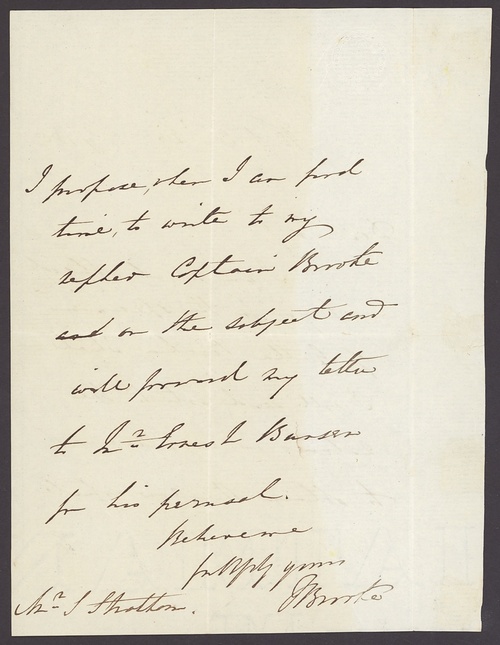 I propose, when I can find
time, to write to my
nephew Captain Brooke
and on the subject and
will forward my letter
to Mr Ernest Bunsen
for his perusal.
Believe me
yours
JBrooke
Mr S Stratton.